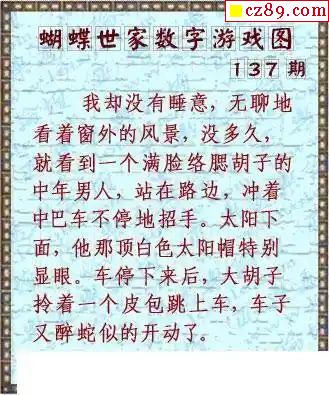 cz89.com
蝴蝶世家数字游戏图
137期
我却没有睡意，无聊地
看着窗外的风景，没多久，
就看到一个满脸络腮胡子的
中年男人，站在路边，冲着
中巴车不停地招手。太阳下
面，他那顶白色太阳帽特别
显眼。车停下来后，大胡子
拎着一个皮包跳上车，车子
又醉蛇似的开动了。